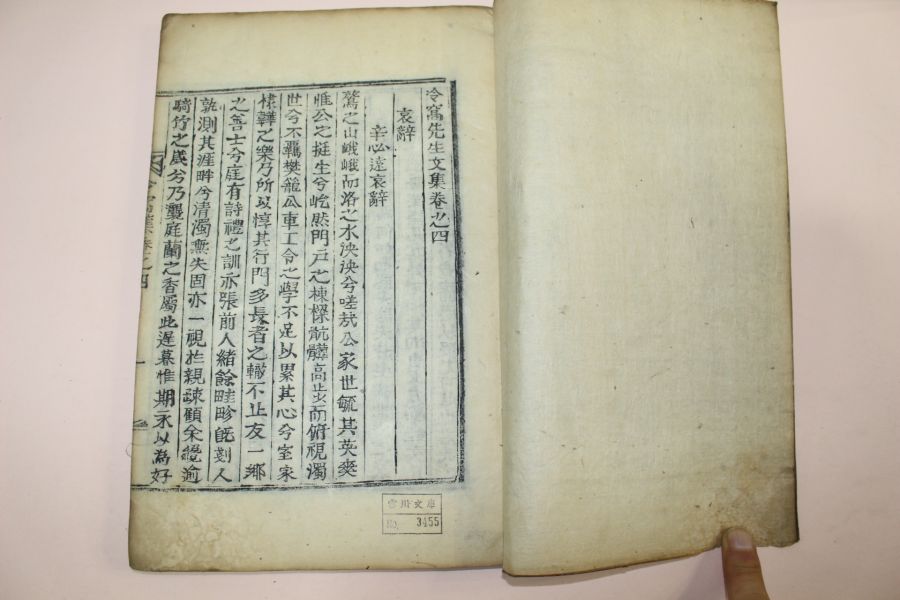 冷窩先生文集卷之四
哀辭
辛必達哀辭
鷲之山峨峨而洛之水泱泱兮嗟哉公家世毓其英爽
惟公之挺生兮屹然門戶之棟樑骯髒高步而俯視濁
世兮不羈樊籠公車工令之學不足以累其心兮室家
棣鞾之樂乃所以惇其行門多長者之轍不止友一鄉
之善士兮庭有詩禮之訓亦張前人緒餘畦畛旣剗人
孰測其涯畔兮淸濁無失固亦一視於親疎顧余纔逾
騎竹之歲兮乃襲庭蘭之香屬此遲暮惟期永以爲好
雪川文庫
No. 3455